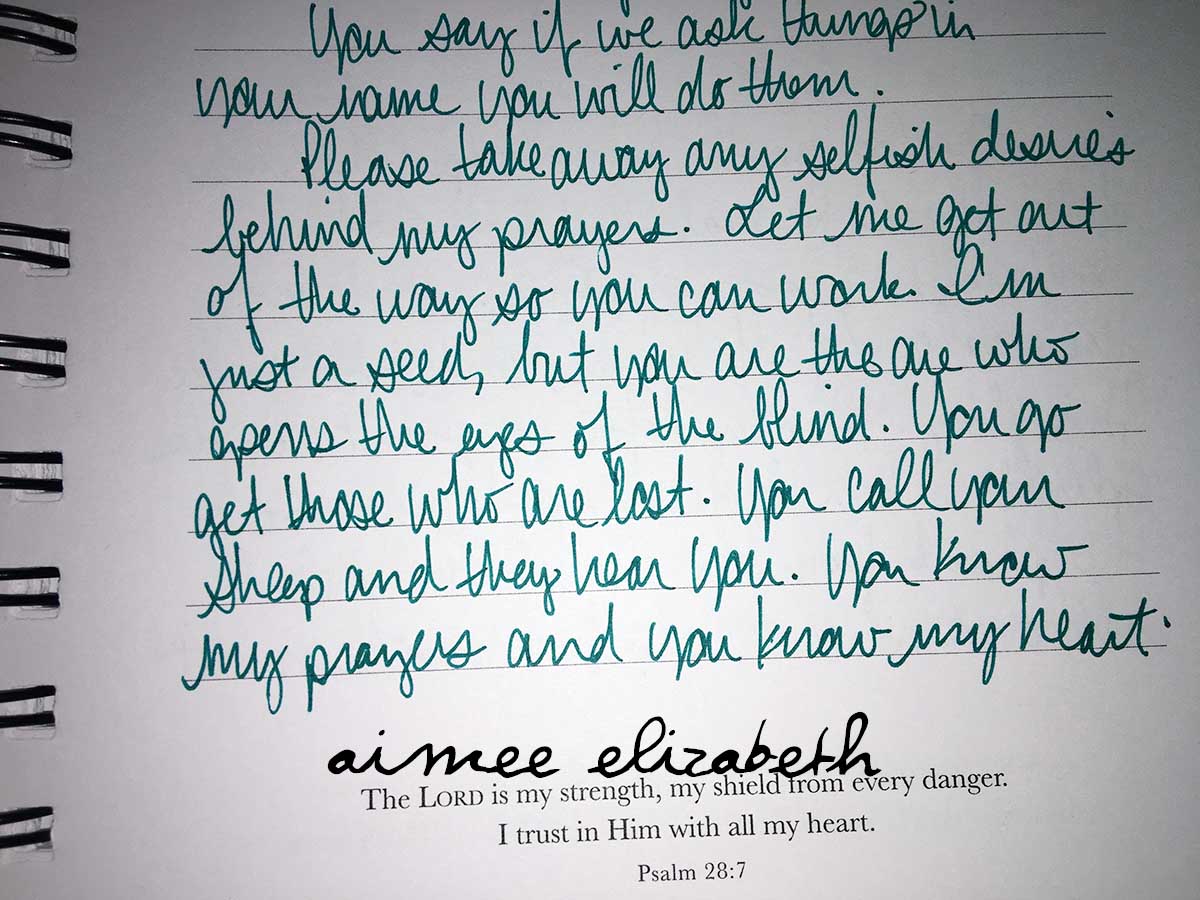 You say if we ask things in
your name you will do them.
Please take away any selfish desires
behind my prayers. Let me get out
of the way so you can work. I'm
just a seed, but you are the one who
opens the eyes of the blind. You go
get those who are lost. You call your
sheep and they hear you. You know
my prayers and you know my heart.
aimee elizabeth
The LORD is my strength, my shield from every danger.
I trust in Him with all my heart.
Psalm 28:7